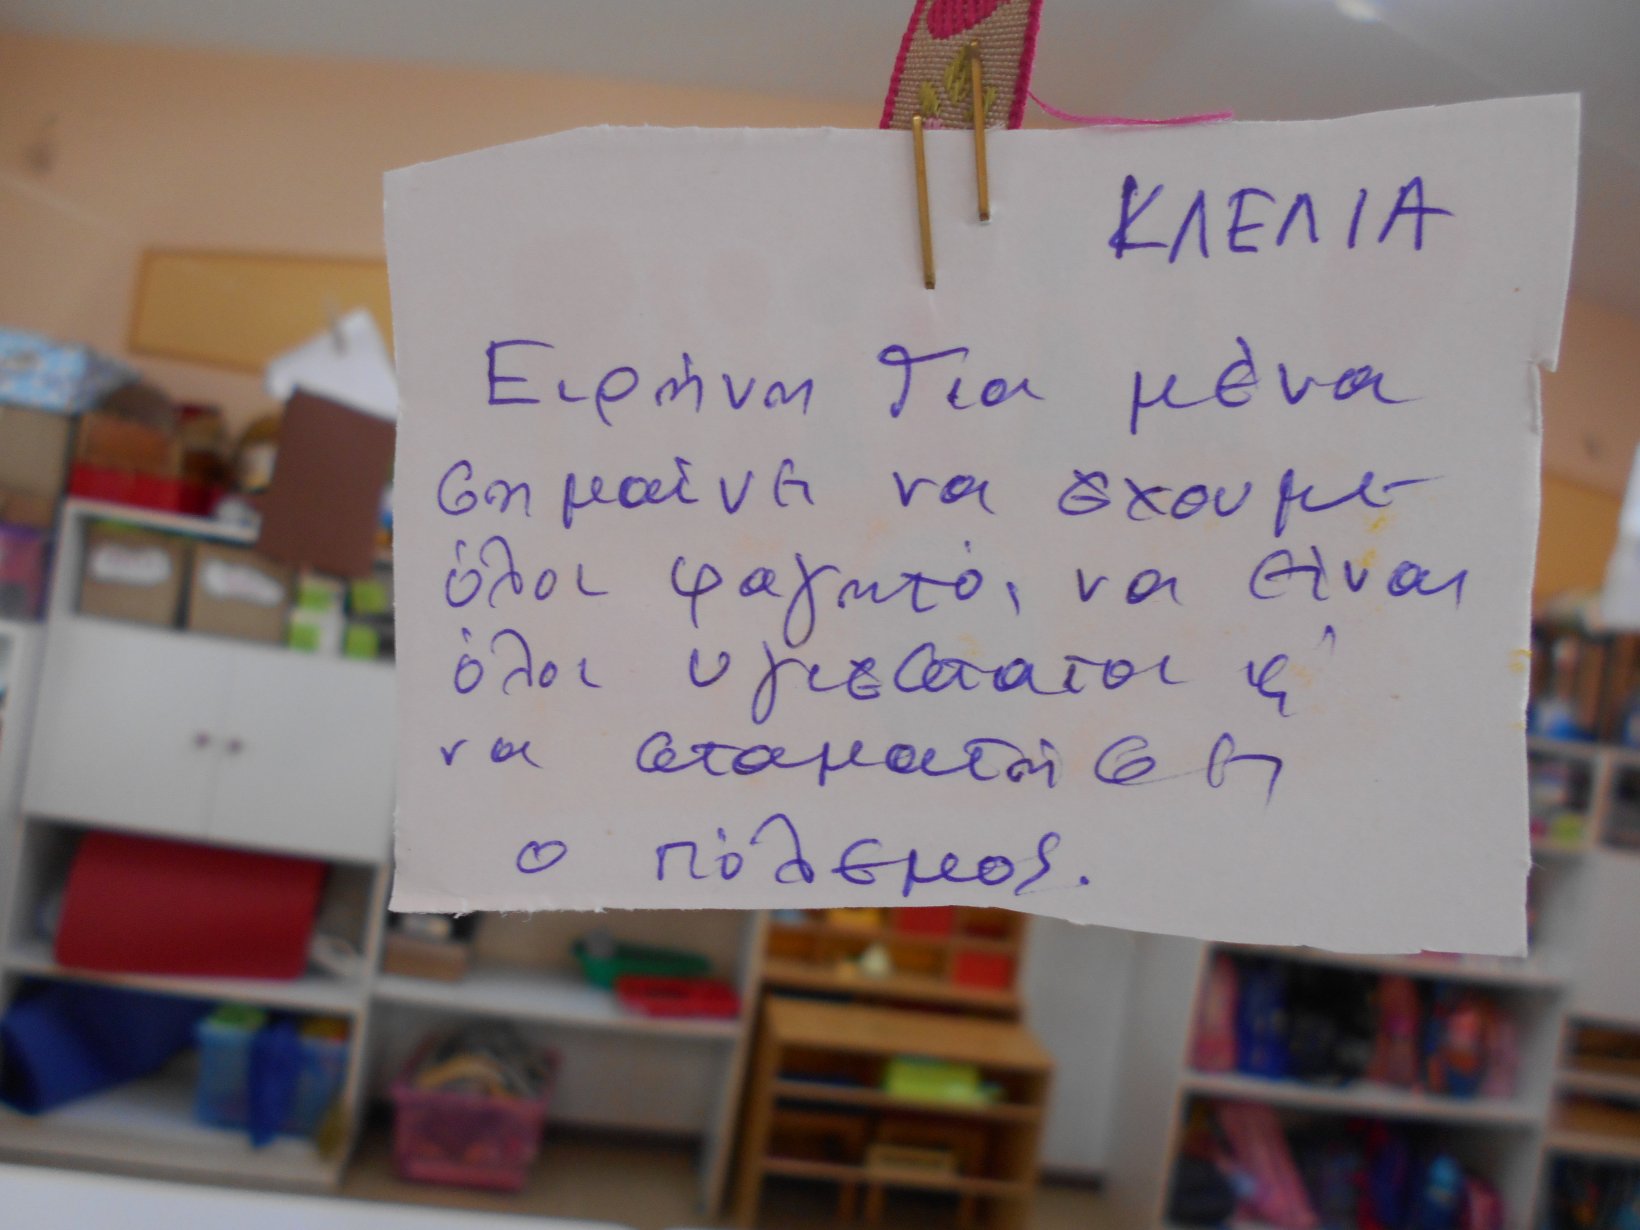 ΚΛΕΛΙΑ
Ειρήνη για μένα
σημαίνει να έχουμε
όλοι φαγητό, να είναι
όλοι υγιέστατοι κ'
να σταματήσει
ο πόλεμος.